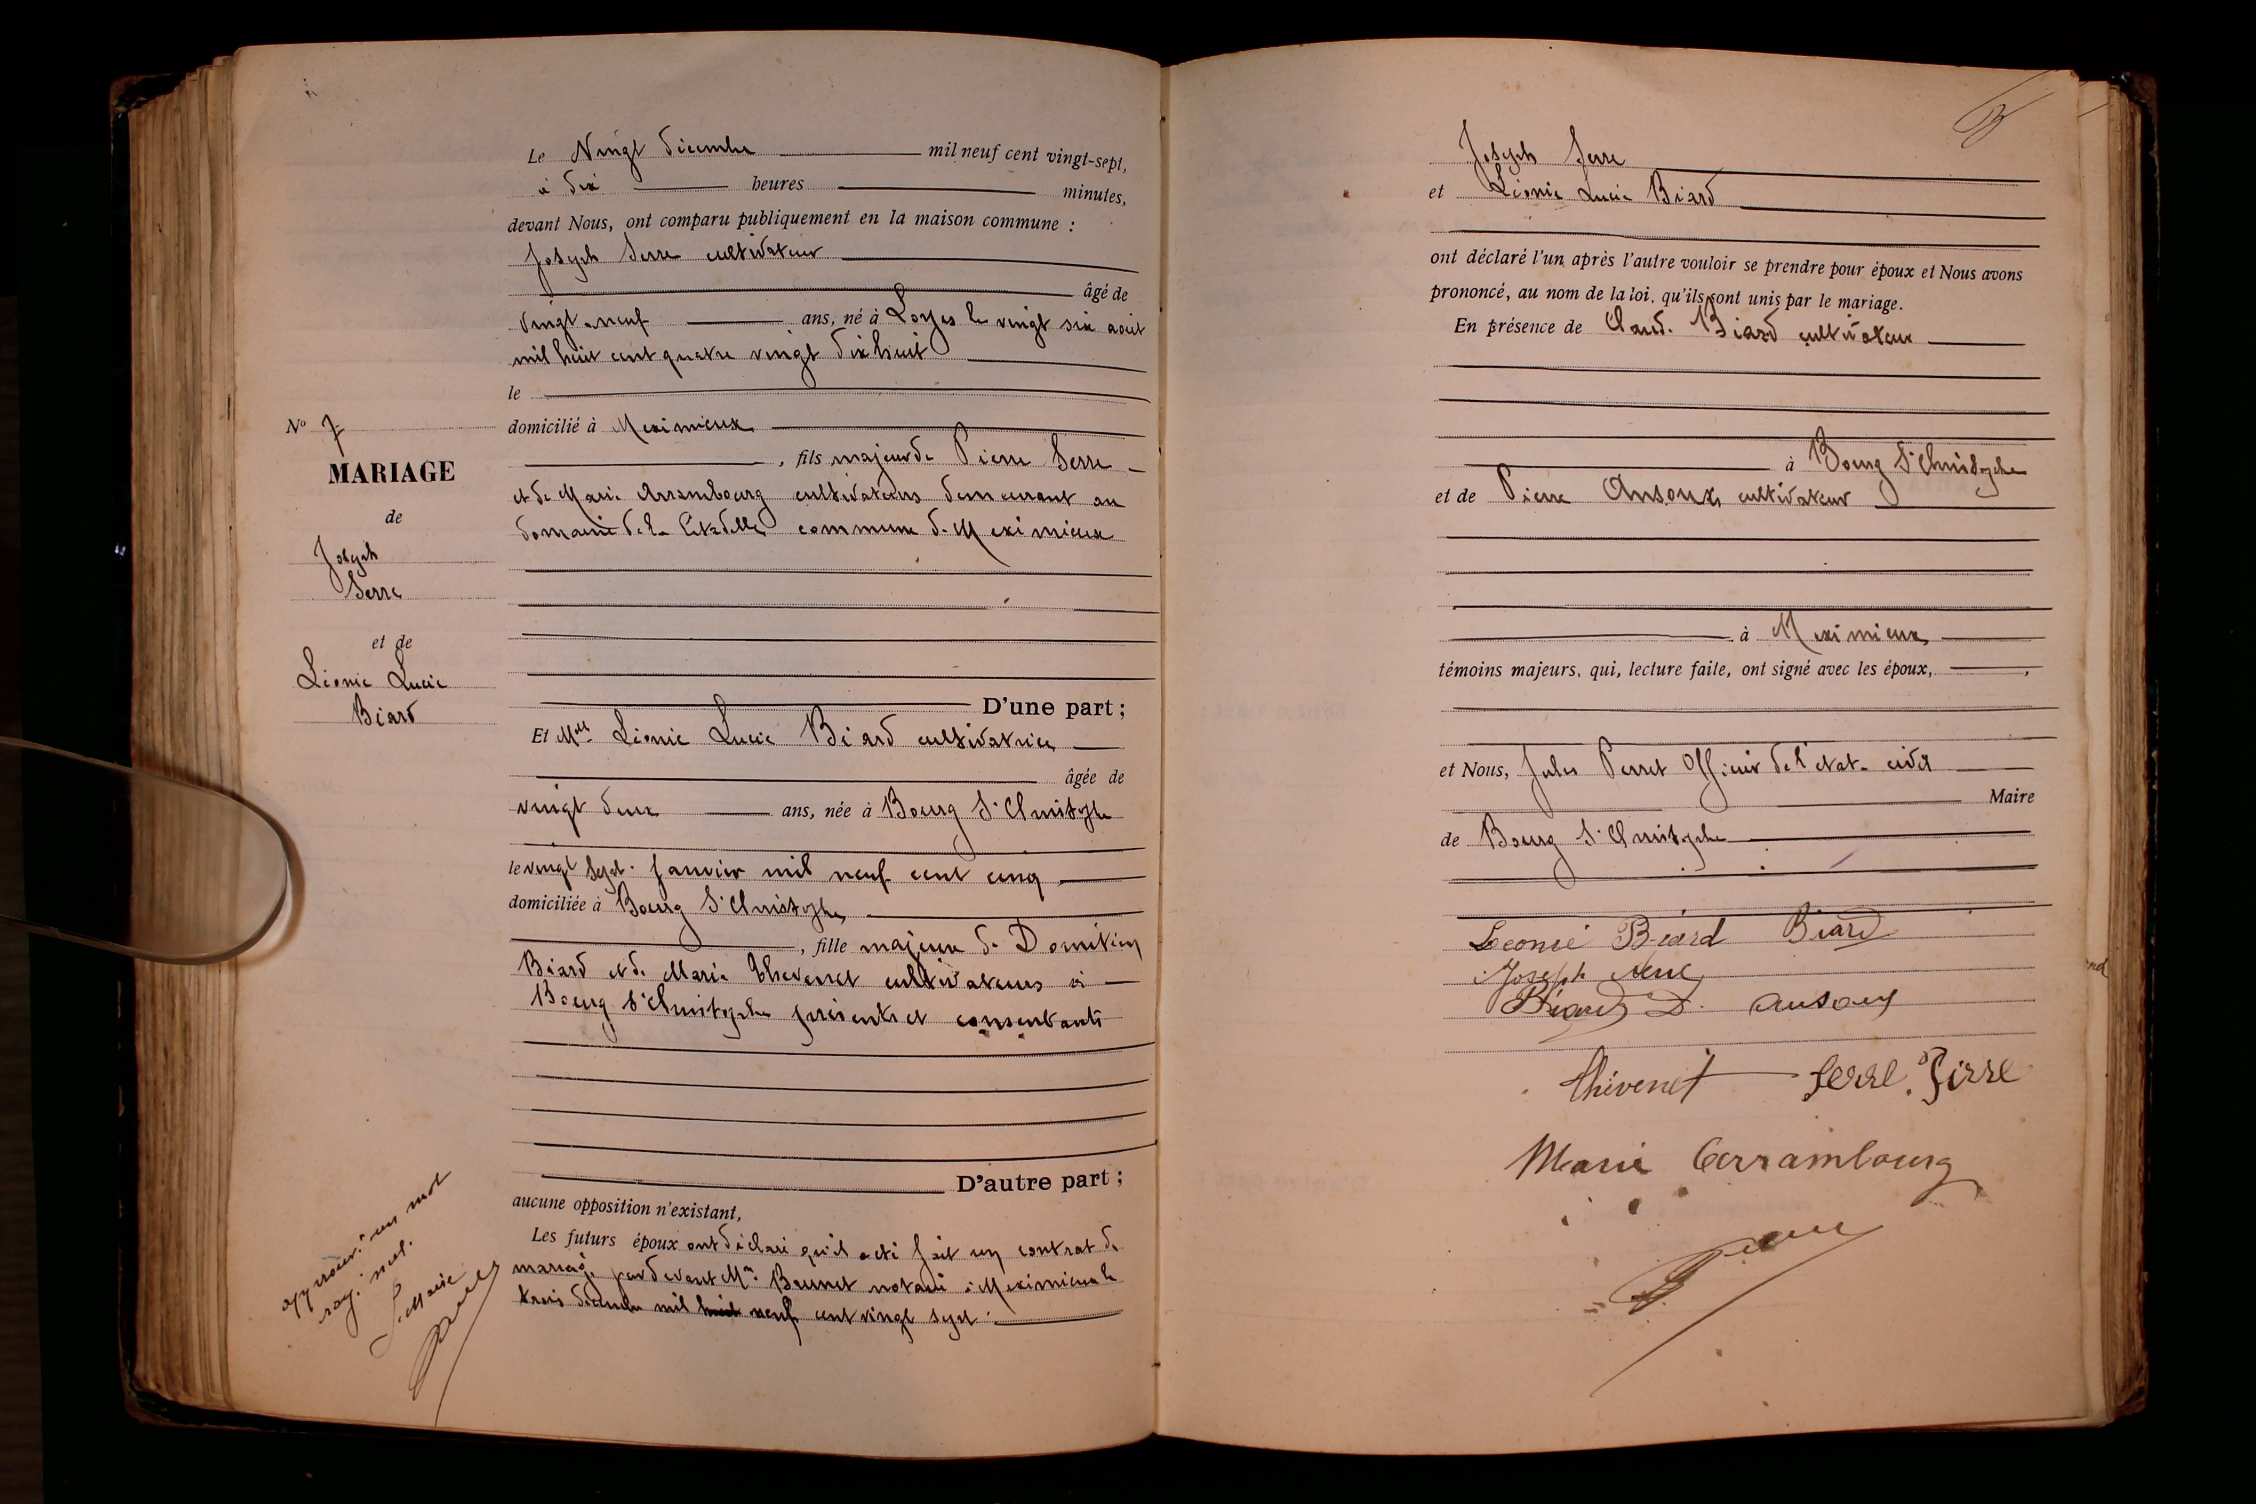 Le Vingt décembre mil neuf cent vingt-sept,
à dix heures minutes,
devant Nous, ont comparu publiquement en la maison commune :
Joseph Serre cultivateur
âgé de
vingt neuf ans, né à Loyes le vingt six aout
mil huit cent quatre vingt dix huit
le
domicilié à Meximieux
, fils majeur de Pierre Serre
et de Marie Arrambourg cultivateurs demeurant au
domaine de la Citadelle commune de Meximieux
N° 7
MARIAGE
de
Joseph
Serre
et de
Léonie Lucie
Béard
D'une part ;
Et Mlle Léonie Lucie Béard cultivatrice
âgée de
vingt deux ans, née à Bourg St Christophe
le vingt sept janvier mil neuf cent cinq
domiciliée à Bourg St Christophe
, fille majeure de Domitien
Béard et de Marie Thévenet cultivateurs à
Bourg St Christophe présents et consentants
D'autre part ;
aucune opposition n'existant,
Les futurs époux ont déclaré qu'il a été fait un contrat de
mariage par devant Me notaire à Meximieux le
trois décembre mil huit neuf cent vingt sept.
approuvé un mot
rayé nul.
Le Maire
Perret
Joseph Serre
et Léonie Lucie Béard
ont déclaré l'un après l'autre vouloir se prendre pour époux et Nous avons
prononcé, au nom de la loi, qu'ils sont unis par le mariage.
En présence de Claud. Béard cultivateur
à Bourg St Christophe
et de Pierre Ansoux cultivateur
à Meximieux
témoins majeurs, qui, lecture faite, ont signé avec les époux, ,
et Nous, Jules Perret Officier de l'état-civil
Maire
de Bourg St Christophe
Léonie Béard Béard
Joseph Serre
Béard D. Ansoux
Thévenet Serre Pierre
Marie Arrambourg
Perret